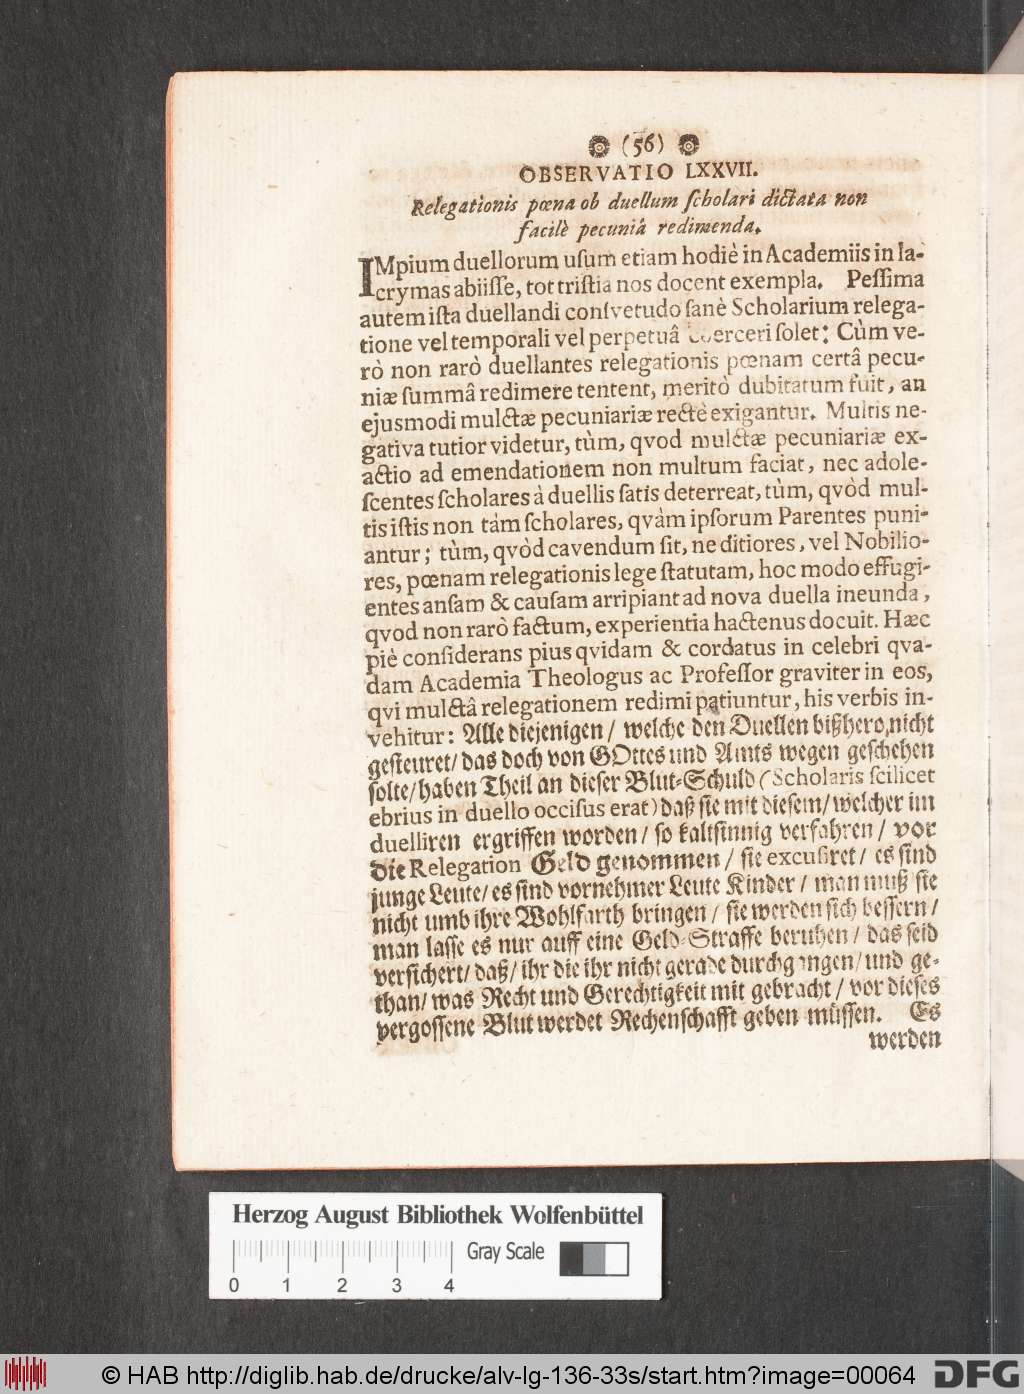 (56)
OBSERVATIO LXXVII.
Relegationis pœna ob duellum ſcholari dictata non
facilè pecuniâ redimenda.
IMpium duellorum uſum etiam hodiè in Academiis in la-
crymas abiiſſe, tot triſtia nos docent exempla. Peſſima
autem iſta duellandi conſvetudo ſanè Scholarium relega-
tione vel temporali vel perpetuâ coerceri ſolet: Cùm ve-
rò non rarò duellantes relegationis pœnam certâ pecu-
niæ ſummâ redimere tentent, meritò dubitatum fuit, an
ejusmodi mulctæ pecuniariæ rectè exigantur. Multis ne-
gativa tutior videtur, tùm, qvod mulctæ pecuniariæ ex-
actio ad emendationem non multum faciat, nec adole-
ſcentes ſcholares à duellis ſatis deterreat, tùm, qvòd mul-
tis iſtis non tám ſcholares, qvàm ipſorum Parentes puni-
antur; tùm, qvòd cavendum ſit, ne ditiores, vel Nobilio-
res, pœnam relegationis lege ſtatutam, hoc modo effugi-
entes anſam & cauſam arripiant ad nova duella ineunda,
qvod non rarò factum, experientia hactenus docuit. Hæc
piè conſiderans pius qvidam & cordatus in celebri qva-
dam Academia Theologus ac Profeſſor graviter in eos,
qvi mulctâ relegationem redimi patiuntur, his verbis in-
vehitur: Alle diejenigen/ welche den Duellen bißhero nicht
geſteuret/ das doch von GOttes und Amts wegen geſchehen
ſolte/ haben Theil an dieſer Blut-Schuld (Scholaris ſcilicet
ebrius in duello occiſus erat) daß ſie mit dieſem/ welcher im
duelliren ergriffen worden/ ſo kaltſinnig verfahren/ vor
die Relegation Geld genommen/ ſie excuſiret/ es ſind
junge Leute/ es ſind vornehmer Leute Kinder/ man muß ſie
nicht umb ihre Wohlfarth bringen/ ſie werden ſich beſſern/
man laſſe es nur auff eine Geld-Straffe beruhen/ das ſeid
verſichert/ daß/ ihr die ihr nicht gerade durchgangen/ und ge-
than/ was Recht und Gerechtigkeit mit gebracht/ vor dieſes
vergoſſene Blut werdet Rechenſchafft geben müſſen. Es
werden
Herzog August Bibliothek Wolfenbüttel
Gray Scale
0 1 2 3 4
© HAB http://diglib.hab.de/drucke/alv-lg-136-33s/start.htm?image=00064
DFG